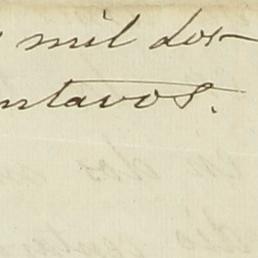 mil dos-
ntavos.